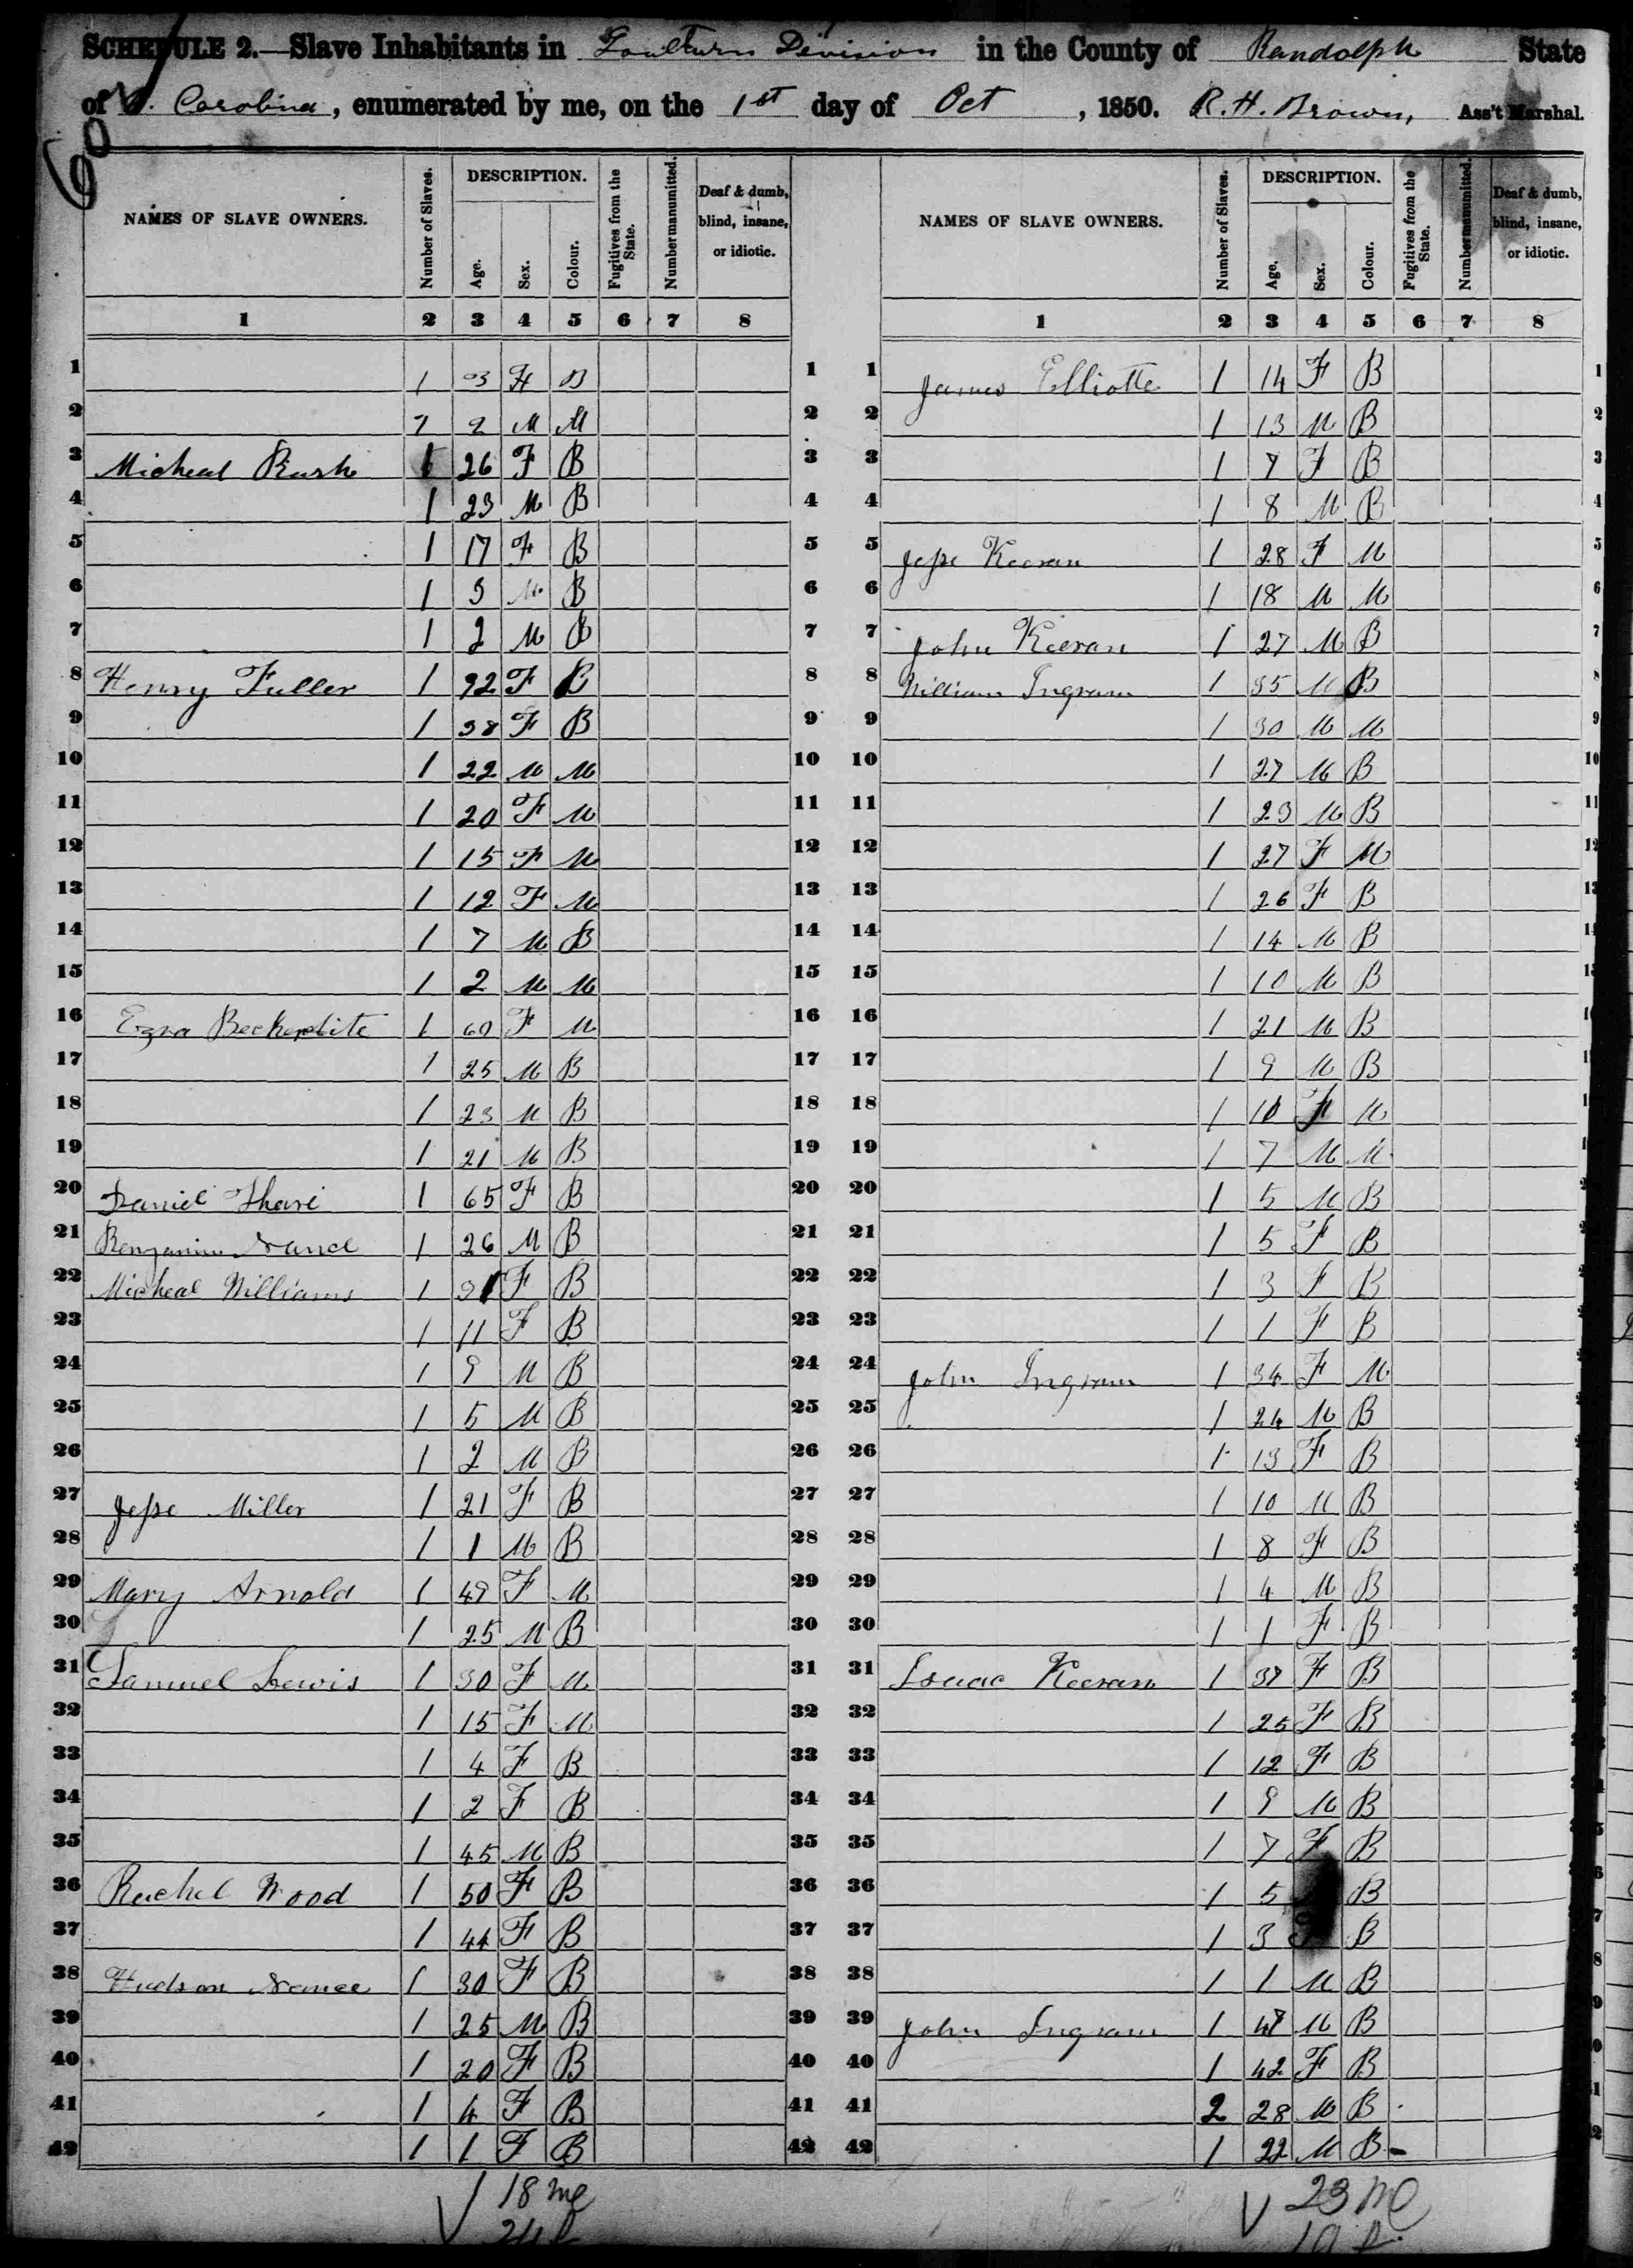 SCHEDULE 2.—Slave Inhabitants in Southern Division in the County of Randolph State
of N. Carolina, enumerated by me, on the 1st day of Oct, 1850. R. H. Brown, Ass't Marshal.
60
NAMES OF SLAVE OWNERS. Number of Slaves. DESCRIPTION. Age. Sex. Colour. Fugitives from the State. Number manumitted. Deaf & dumb, blind, insane, or idiotic.
NAMES OF SLAVE OWNERS. Number of Slaves. DESCRIPTION. Age. Sex. Colour. Fugitives from the State. Number manumitted. Deaf & dumb, blind, insane, or idiotic.
1 2 3 4 5 6 7 8 1 2 3 4 5 6 7 8
1 1 3 F B 1
2 2 M M 2
3 Micheal Rush 26 F B 3
4 1 23 M B 4
5 1 17 F B 5
6 1 3 M B 6
7 1 2 M B 7
8 Henry Fuller 1 92 F B 8
9 1 38 F B 9
10 1 22 M M 10
11 1 20 F M 11
12 1 15 F M 12
13 1 12 F M 13
14 1 7 M B 14
15 1 2 M M 15
16 Ezra Beckerdite 1 60 F M 16
17 1 25 M B 17
18 1 23 M B 18
19 1 21 M B 19
20 Daniel 1 65 F B 20
21 Benjamin Nance 1 26 M B 21
22 Micheal Williams 1 31 F B 22
23 1 11 F B 23
24 1 9 M B 24
25 1 5 M B 25
26 1 2 M B 26
27 Jesse Miller 1 21 F B 27
28 1 1 M B 28
29 Mary Arnold 1 49 F M 29
30 1 25 M B 30
31 Samuel Lewis 1 30 F M 31
32 1 15 F M 32
33 1 4 F B 33
34 1 2 F B 34
35 1 45 M B 35
36 Rachel Wood 1 50 F B 36
37 1 44 F B 37
38 Hudson Nance 1 30 F B 38
39 1 25 M B 39
40 1 20 F B 40
41 1 4 F B 41
42 1 1 F B 42
18 m
24 f
1 James Elliotte 1 14 F B 1
2 1 13 M B 2
3 1 7 F B 3
4 1 8 M B 4
5 Jesse Keeran 1 28 F M 5
6 1 18 M M 6
7 John Keeran 1 27 M B 7
8 William Ingram 1 35 M B 8
9 1 30 M M 9
10 1 27 M B 10
11 1 23 M B 11
12 1 27 F M 12
13 1 26 F B 13
14 1 14 M B
15 1 10 M B
16 1 21 M B
17 1 9 M B
18 1 10 F M
19 1 7 M M
20 1 5 M B
21 1 5 F B
22 1 3 F B
23 1 1 F B
24 John Ingram 1 34 F M
25 1 24 M B
26 1 13 F B
27 1 10 M B
28 1 8 F B
29 1 4 M B
30 1 1 F B
31 Isaac Keeran 1 37 F B
32 1 25 F B
33 1 12 F B
34 1 9 M B
35 1 7 F B
36 1 5 B
37 1 3 B
38 1 1 M B
39 John Ingram 1 47 M B
40 1 42 F B
41 2 28 M B
42 1 22 M B
23 m
19 f